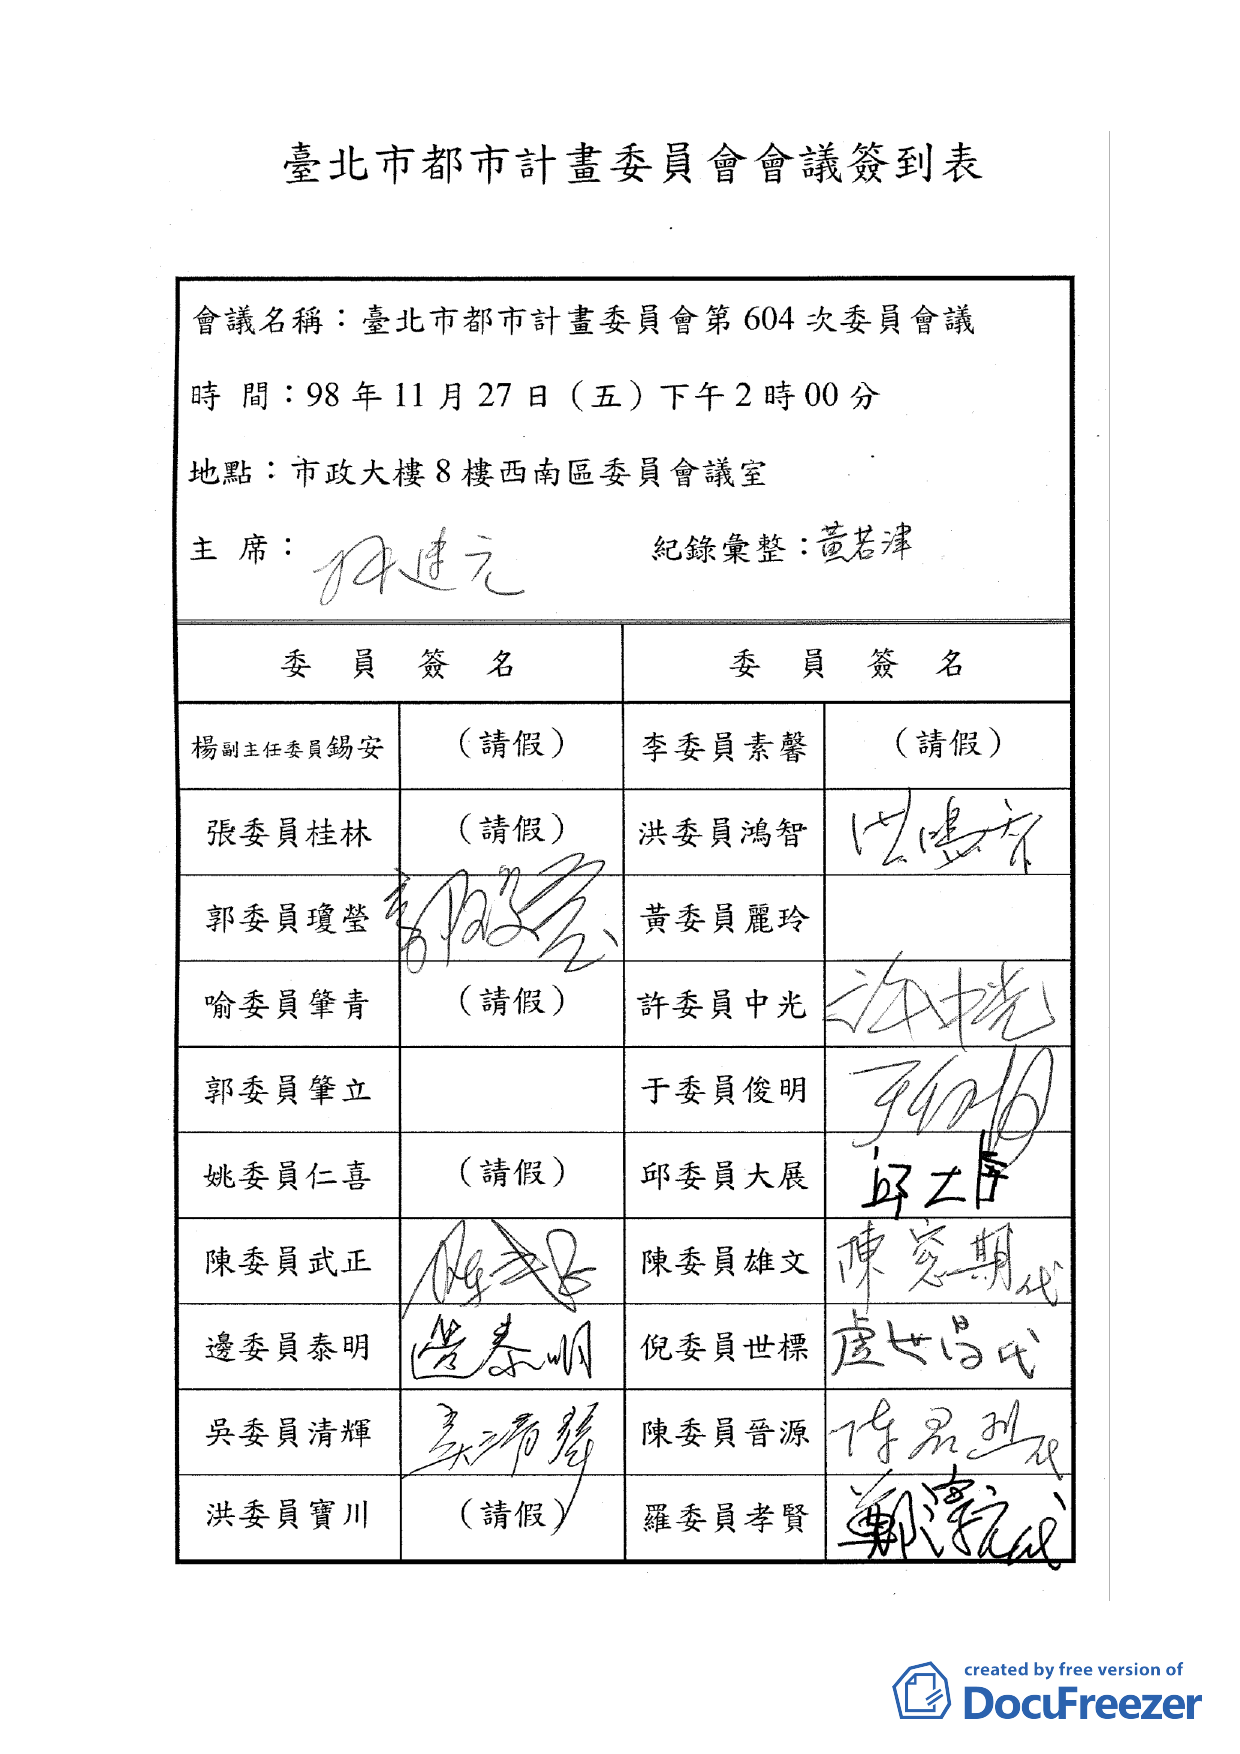 臺北市都市計畫委員會會議簽到表
會議名稱：臺北市都市計畫委員會第 604 次委員會議
時 間：98 年 11 月 27 日（五）下午 2 時 00 分
地點：市政大樓 8 樓西南區委員會議室
主 席： 林建元 紀錄彙整：黃若津
委 員 簽 名 委 員 簽 名
楊副主任委員錫安 （請假） 李委員素馨 （請假）
張委員桂林 （請假） 洪委員鴻智 洪鴻智
郭委員瓊瑩 郭瓊瑩 黃委員麗玲
喻委員肇青 （請假） 許委員中光 許中光
郭委員肇立 于委員俊明 于俊明
姚委員仁喜 （請假） 邱委員大展 邱大展
陳委員武正 陳武正 陳委員雄文 陳窓期代
邊委員泰明 邊泰明 倪委員世標 盧世昌代
吳委員清輝 吳清輝 陳委員晉源 陳君烈代
洪委員寶川 （請假） 羅委員孝賢 鄭代
created by free version of
DocuFreezer